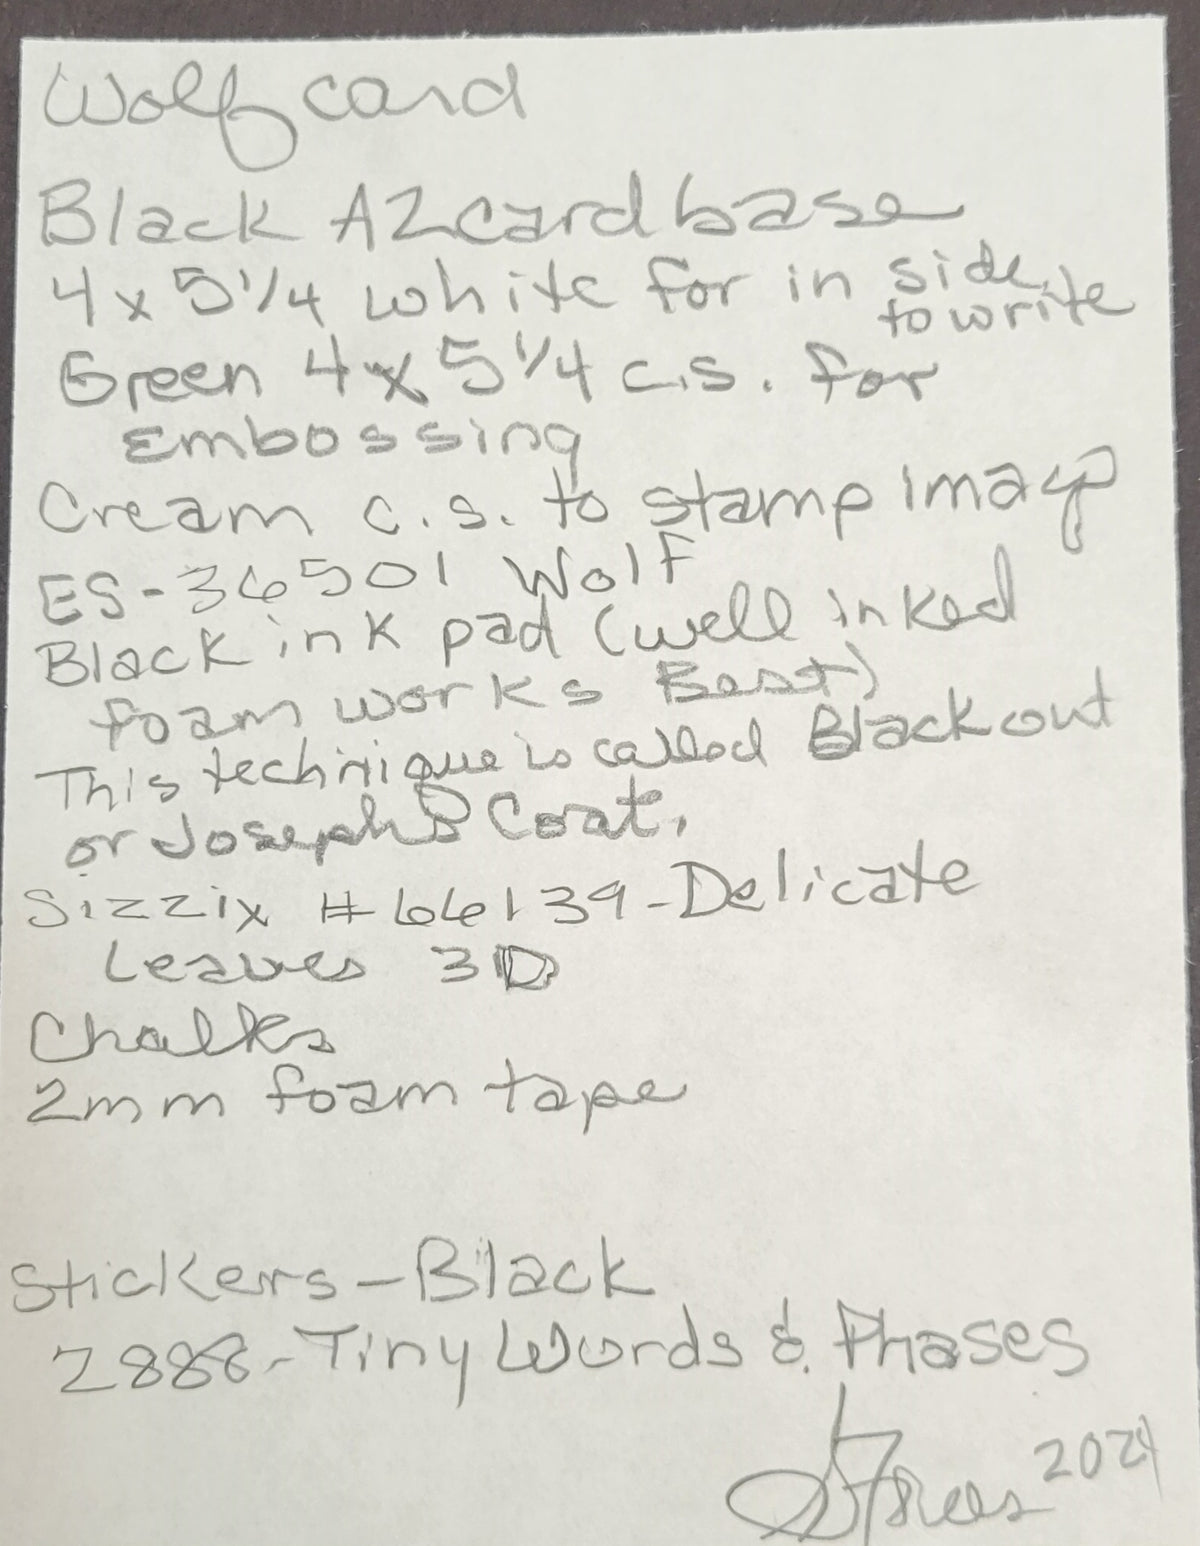 Wolf card
Black A2 card base
4 x 5 1/4 white for in side,
to write
Green 4 x 5 1/4 c.s. for
Embossing
Cream c.s. to stamp image
ES-36501 Wolf
Black ink pad (well inked
foam works Best)
This technique is called Blackout
or Joseph's Coat.
Sizzix #66139-Delicate
Leaves 3D
Chalks
2mm foam tape
Stickers-Black
2888-Tiny Words & Phases
2021